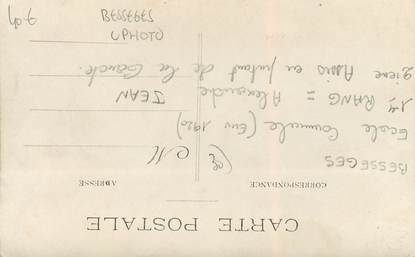 CARTE POSTALE
CORRESPONDANCE
ADRESSE
BESSEGES
Ecole Communale (Env 1920)
1er RANG = Alexandre JEAN
2ième Assis en partant de la Gauche.
PHOTO